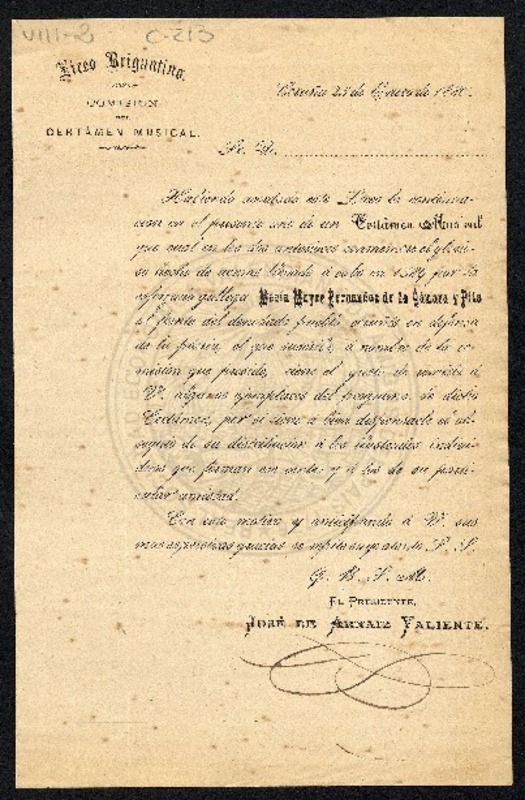 VIII-2 C-213
Liceo Brigantino.
COMISION
DEL
CERTÁMEN MUSICAL.
Coruña 25 de Enero de
Sr. D.
Habiendo acordado este Liceo la
en el presente año de un Certámen Musical
que cual en los dos anteriores conmemore el
hecho de armas llevado á cabo en 1589 por la
gallega María Mayor Fernandez de la Cámara y Pita
al frente del denodado pueblo en defensa
de la pátria, el que suscribe, á nombre de la Co-
mision que preside, tiene el gusto de remitir á
V. algunos ejemplares del programa de dicho
Certámen, por si tiene á bien dispensarle el ob-
sequio de su distribucion á los
que forman y á los de su parti-
cular amistad.
Con este motivo y anticipando á V. sus
mas expresivas gracias, se repite su S. S.
Q. B. S. M.
EL PRESIDENTE,
JOSÉ DE ARNAIZ VALIENTE.